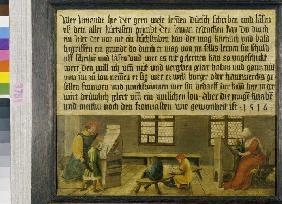 Wer jemandt hie der gern welt lernen dütsch schriben und läsen
uß dem aller kürtzisten grundt den jeman erdencken kan do durch
ein jeder der vor nit ein buochstaben kan der mag kürtzlich und bald
begriffen ein grundt do durch er mag von jm selbs lernen sin schuld
uff schribē und läsen und wer es nit gelernen kan so ungeschickt
were den will ich um nüt und vergeben gelert haben und gantz nüt
von jm zů lon nemen er syg wer er well burger ouch handtwercks ge
sellen frowen und junckfrouwen wer sin bedarff der kumm har jn der
wirt drüwlich gelert um ein zimlichen lon · aber die junge knabē
und meitlin noch den fronuasten wie gewonheit ist · 1516 ·